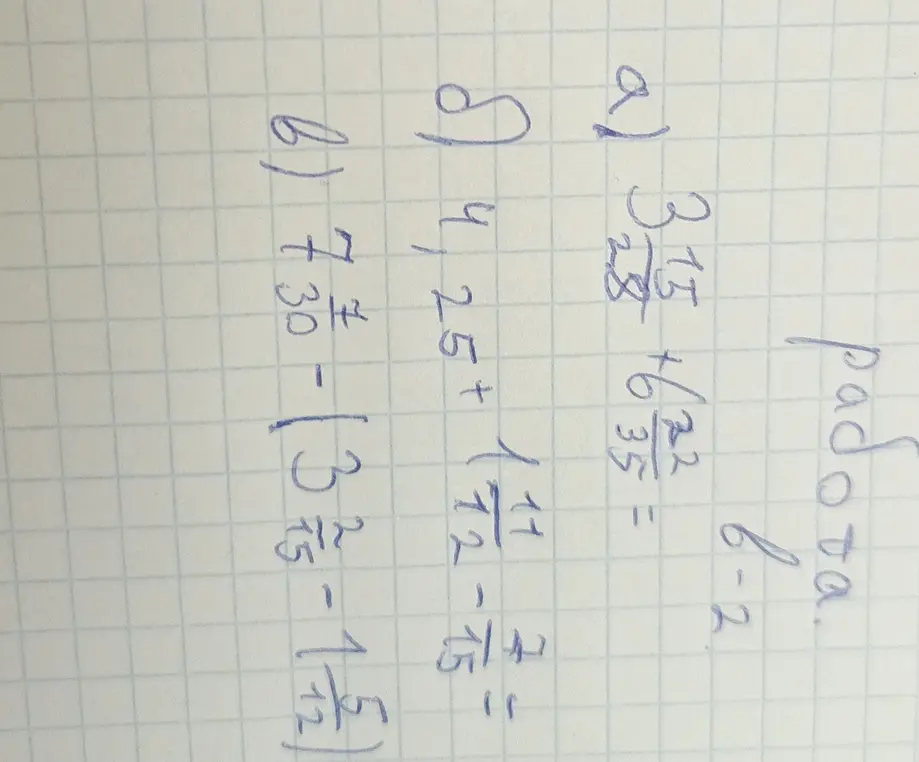 работа.
в-2
а) 3 15/28 + 6 22/35 =
б) 4,25 + 1 11/12 - 7/15 =
в) 7 7/30 - (3 2/15 - 1 5/12)